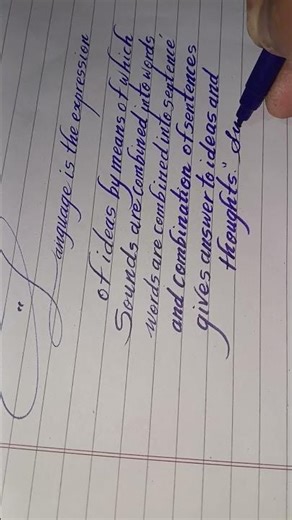 "Language is the expression
of ideas by means of which
Sounds are combined into words
words are combined into sentence'
and combination of sentences
gives answer to ideas and
thoughts."